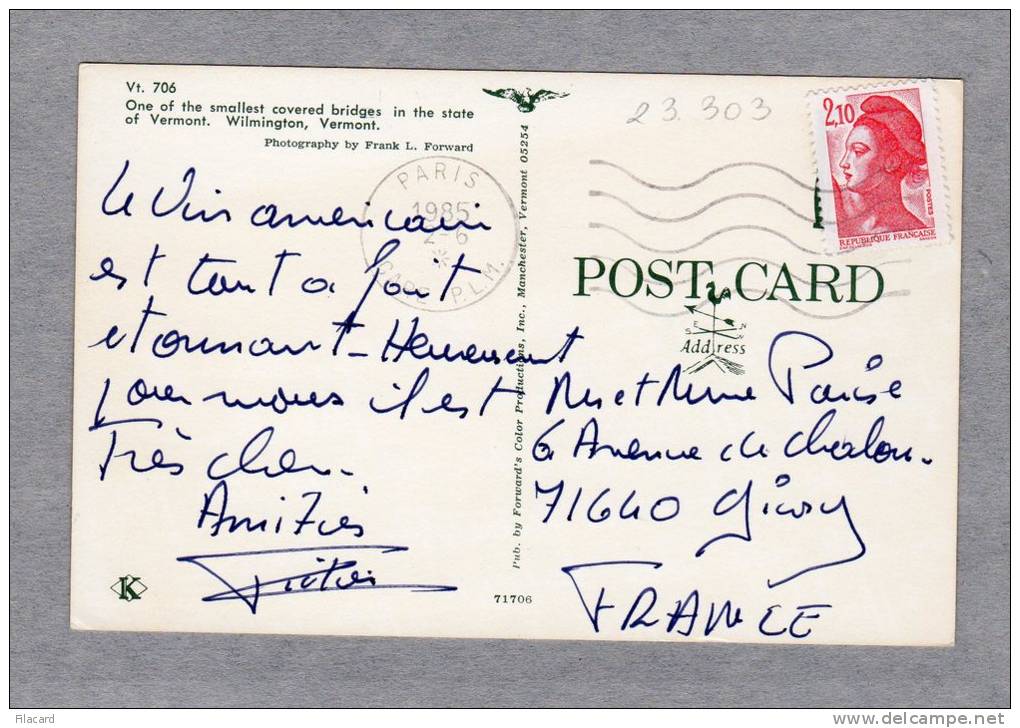 Vt. 706
One of the smallest covered bridges in the state
of Vermont. Wilmington, Vermont.
Photography by Frank L. Forward
Le Vin americain
est tout a fait
etonnant - Heureusement
pour nous il est
Très cher.
Amitiés
K
Pub. by Forward's Color Productions, Inc., Manchester, Vermont 05254
71706
PARIS
1985
2-6
*
GARE P.L.M.
23.303
2,10
POSTES
REPUBLIQUE FRANÇAISE
POST CARD
S E N W
Address
Mr et Mme Parise
6 Avenue de Chalon.
71640 Givry
FRANCE
Filacard
delcampe.net